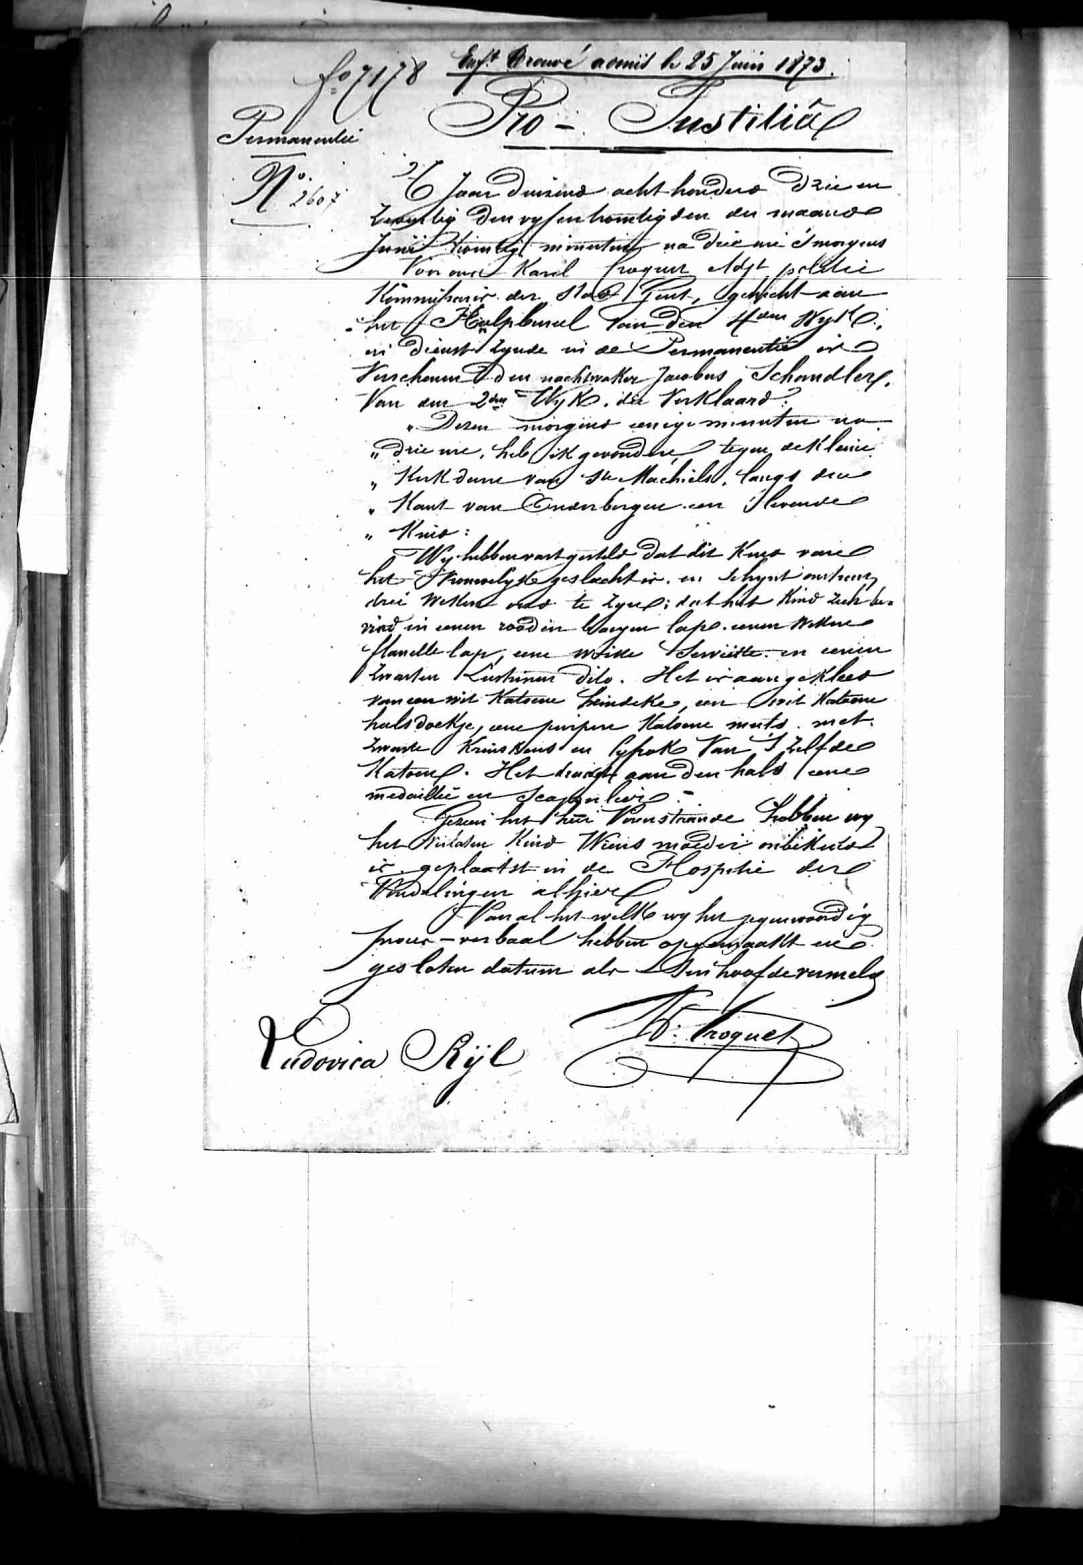 fo 7178 Enft Trouvé admis le 25 Juin 1873.
Pro - Justitiâ
Permanentie
No. 2607
't Jaar duizend acht honderd drie en
zeventig den vyfentwintigsten der maand
Junij twintig minuten na drie ure s'morgens
Voor ons Karel Croquet Adjt policie
Kommissaris der Stad Gent, gehecht aan
het Hulpbureel van den 4den Wyk,
in dienst zynde in de Permanentie is
Verschenen den nachtwaker Jacobus Schandler,
Van den 2den Wyk. die Verklaard:
" Dezen morgend eenige minuten na
" drie ure, heb ik gevonden, tegen de kleine
" Kerkdeure van Ste Machiels, langs den
" Kant van Onderbergen een levende
" Kind:
Wy hebben vastgesteld dat dit Kind van
het Vrouwelyk geslacht is. en Schynt omtrent
drie Weken oud te zyn; dat het Kind zich be-
vind in eenen rooden baeyen lap. eenen Witten
flanelle lap, eene witte Serviette. en eenen
zwarten Lusteren dito. Het is aangekleed
van een wit Katoene hemdeke, een wit Katoene
halsdoekje, eene purpere Katoene muts. met
zwarte en lyfrok Van 't zelfde
Katoen. Het draagt aan den hals eene
medaillie en scapulier.-
Gezien het hier Vorenstaande hebben wy
het Verlaten Kind Wiens moeder onbekend
is geplaatst in de Hospitie der
Vondelingen alhier
Van al het welk wy het tegenwoordig
proces-verbaal hebben opgemaakt en
gesloten datum als ten hoofde vermeld
K. Croquet
Ludovica Rÿl